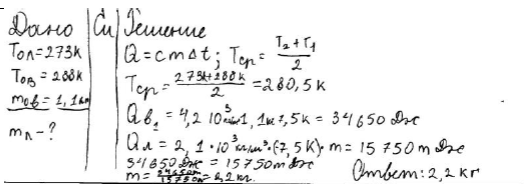 Дано
Си
Решение
T₀л=273К
T₀в=288К
m₀в=1,1кг
mл-?
Q=cmΔt; Tср=T₂+T₁/2
Tср=273К+288К/2=280,5К
Qв₁=4,2·10³ 1,1кг·7,5К=34650Дж
Qл=2,1·10³ ·(7,5К)·m=15750m Дж
34650Дж=15750m Дж
m=34650/15750=2,2кг.
Ответ: 2,2кг